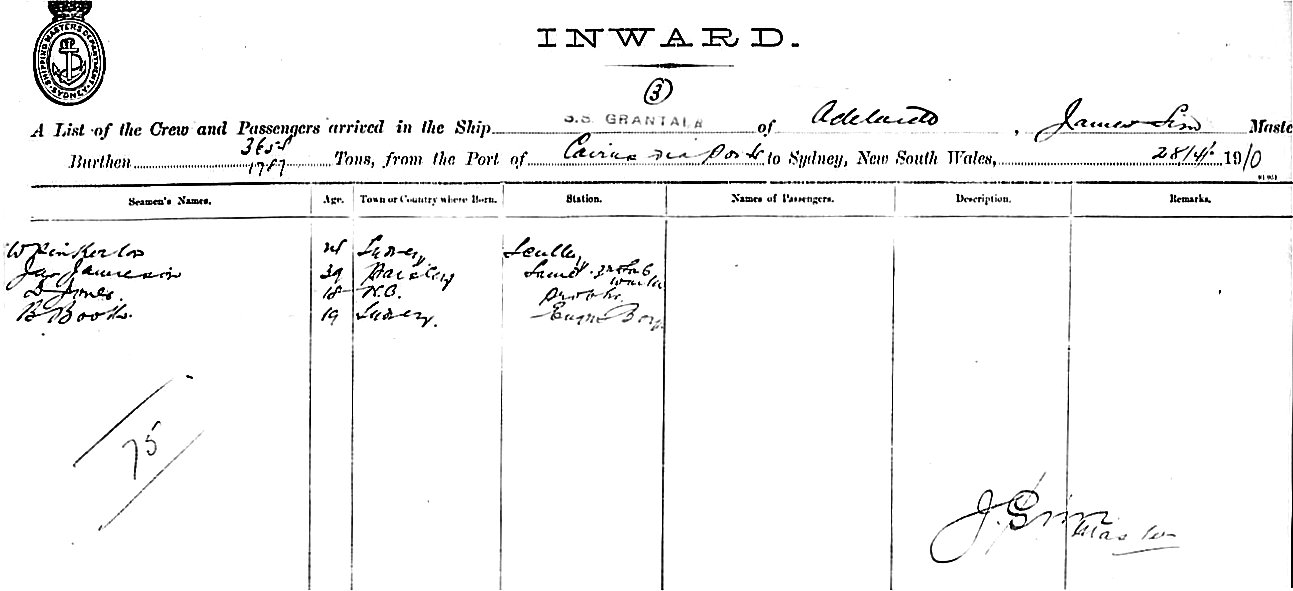 SHIPPING MASTER'S DEPARTMENT SYDNEY
INWARD.
3
A List of the Crew and Passengers arrived in the Ship S.S. GRANTALA of Adelaide, James Sim Maste
Burthen 3655 1787 Tons, from the Port of Cairns via Ports to Sydney, New South Wales, 28/4/ 1910
Seamen's Names. Age. Town or Country where Born. Station. Names of Passengers. Description. Remarks.
W Pinkerton Sydney Scullery
Jas Jamieson 39 Paisley
D Jones. 18 N.Z.
B Booth. 19 Sydney. Engrs Boy
75
J. Sim Master